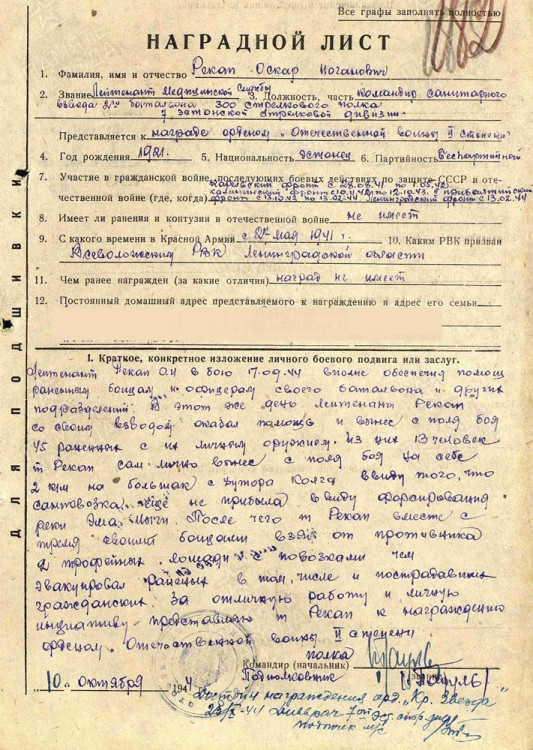 Все графы заполнять полностью
НАГРАДНОЙ ЛИСТ
1. Фамилия, имя и отчество Рекап Оскар Юганович
2. Звание Лейтенант Медицинской Службы 3. Должность, часть командир санитарного
взвода 2го батальона 300 стрелкового полка
7 эстонской стрелковой дивизии
Представляется к награде орденом „Отечественной войны II степени"
4. Год рождения 1921. 5. Национальность эстонец 6. Партийность беспартийный
7. Участие в гражданской войне, последующих боевых действиях по защите СССР и отечественной войне (где, когда)
Калининский фронт с 10.11.42 по 12.10.43. 2 прибалтийский
фронт с 13.10.43 по 13.02.44 Ленинградский фронт с 13.02.44
8. Имеет ли ранения и контузии в отечественной войне не имеет
9. С какого времени в Красной Армии с мая 1941 г. 10. Каким РВК призван
Всеволожским РВК Ленинградской области
11. Чем ранее награжден (за какие отличия) наград не имеет
12. Постоянный домашний адрес представляемого к награждению и адрес его семьи
ДЛЯ ПОДШИВКИ
I. Краткое, конкретное изложение личного боевого подвига или заслуг.
Лейтенант Рекап О.И в бою 17.09.44 вполне обеспечил помощ
раненным бойцам и офицерам своего батальона и других
подразделений. В этот же день лейтенант Рекап
со своим взводом оказал помощь и вынес с поля боя
45 раненных с их личным оружием. Из них 13 человек
т Рекап сам лично вынес с поля боя на себе
2 км на большак с хутора Колга ввиду того, что
сантовозка еще не прибыла в виду форсирования
реки Эма-Йыги. После чего т Рекап вместе с
тремя своими бойцами взял от противника
2 трофейных лошади с повозками чем
эвакуировал раненых в том, числе и пострадавших
гражданских. За отличную работу и личную
инициативу представляю т Рекап к награждению
орденом „Отечественной войны II степени
полка
Командир (начальник)
Подполковник
(Пауль)
"10" октября 1944
Достоин награждения орд. „Кр. Звезда"
Дивврач 7ой Эст. стр. див.